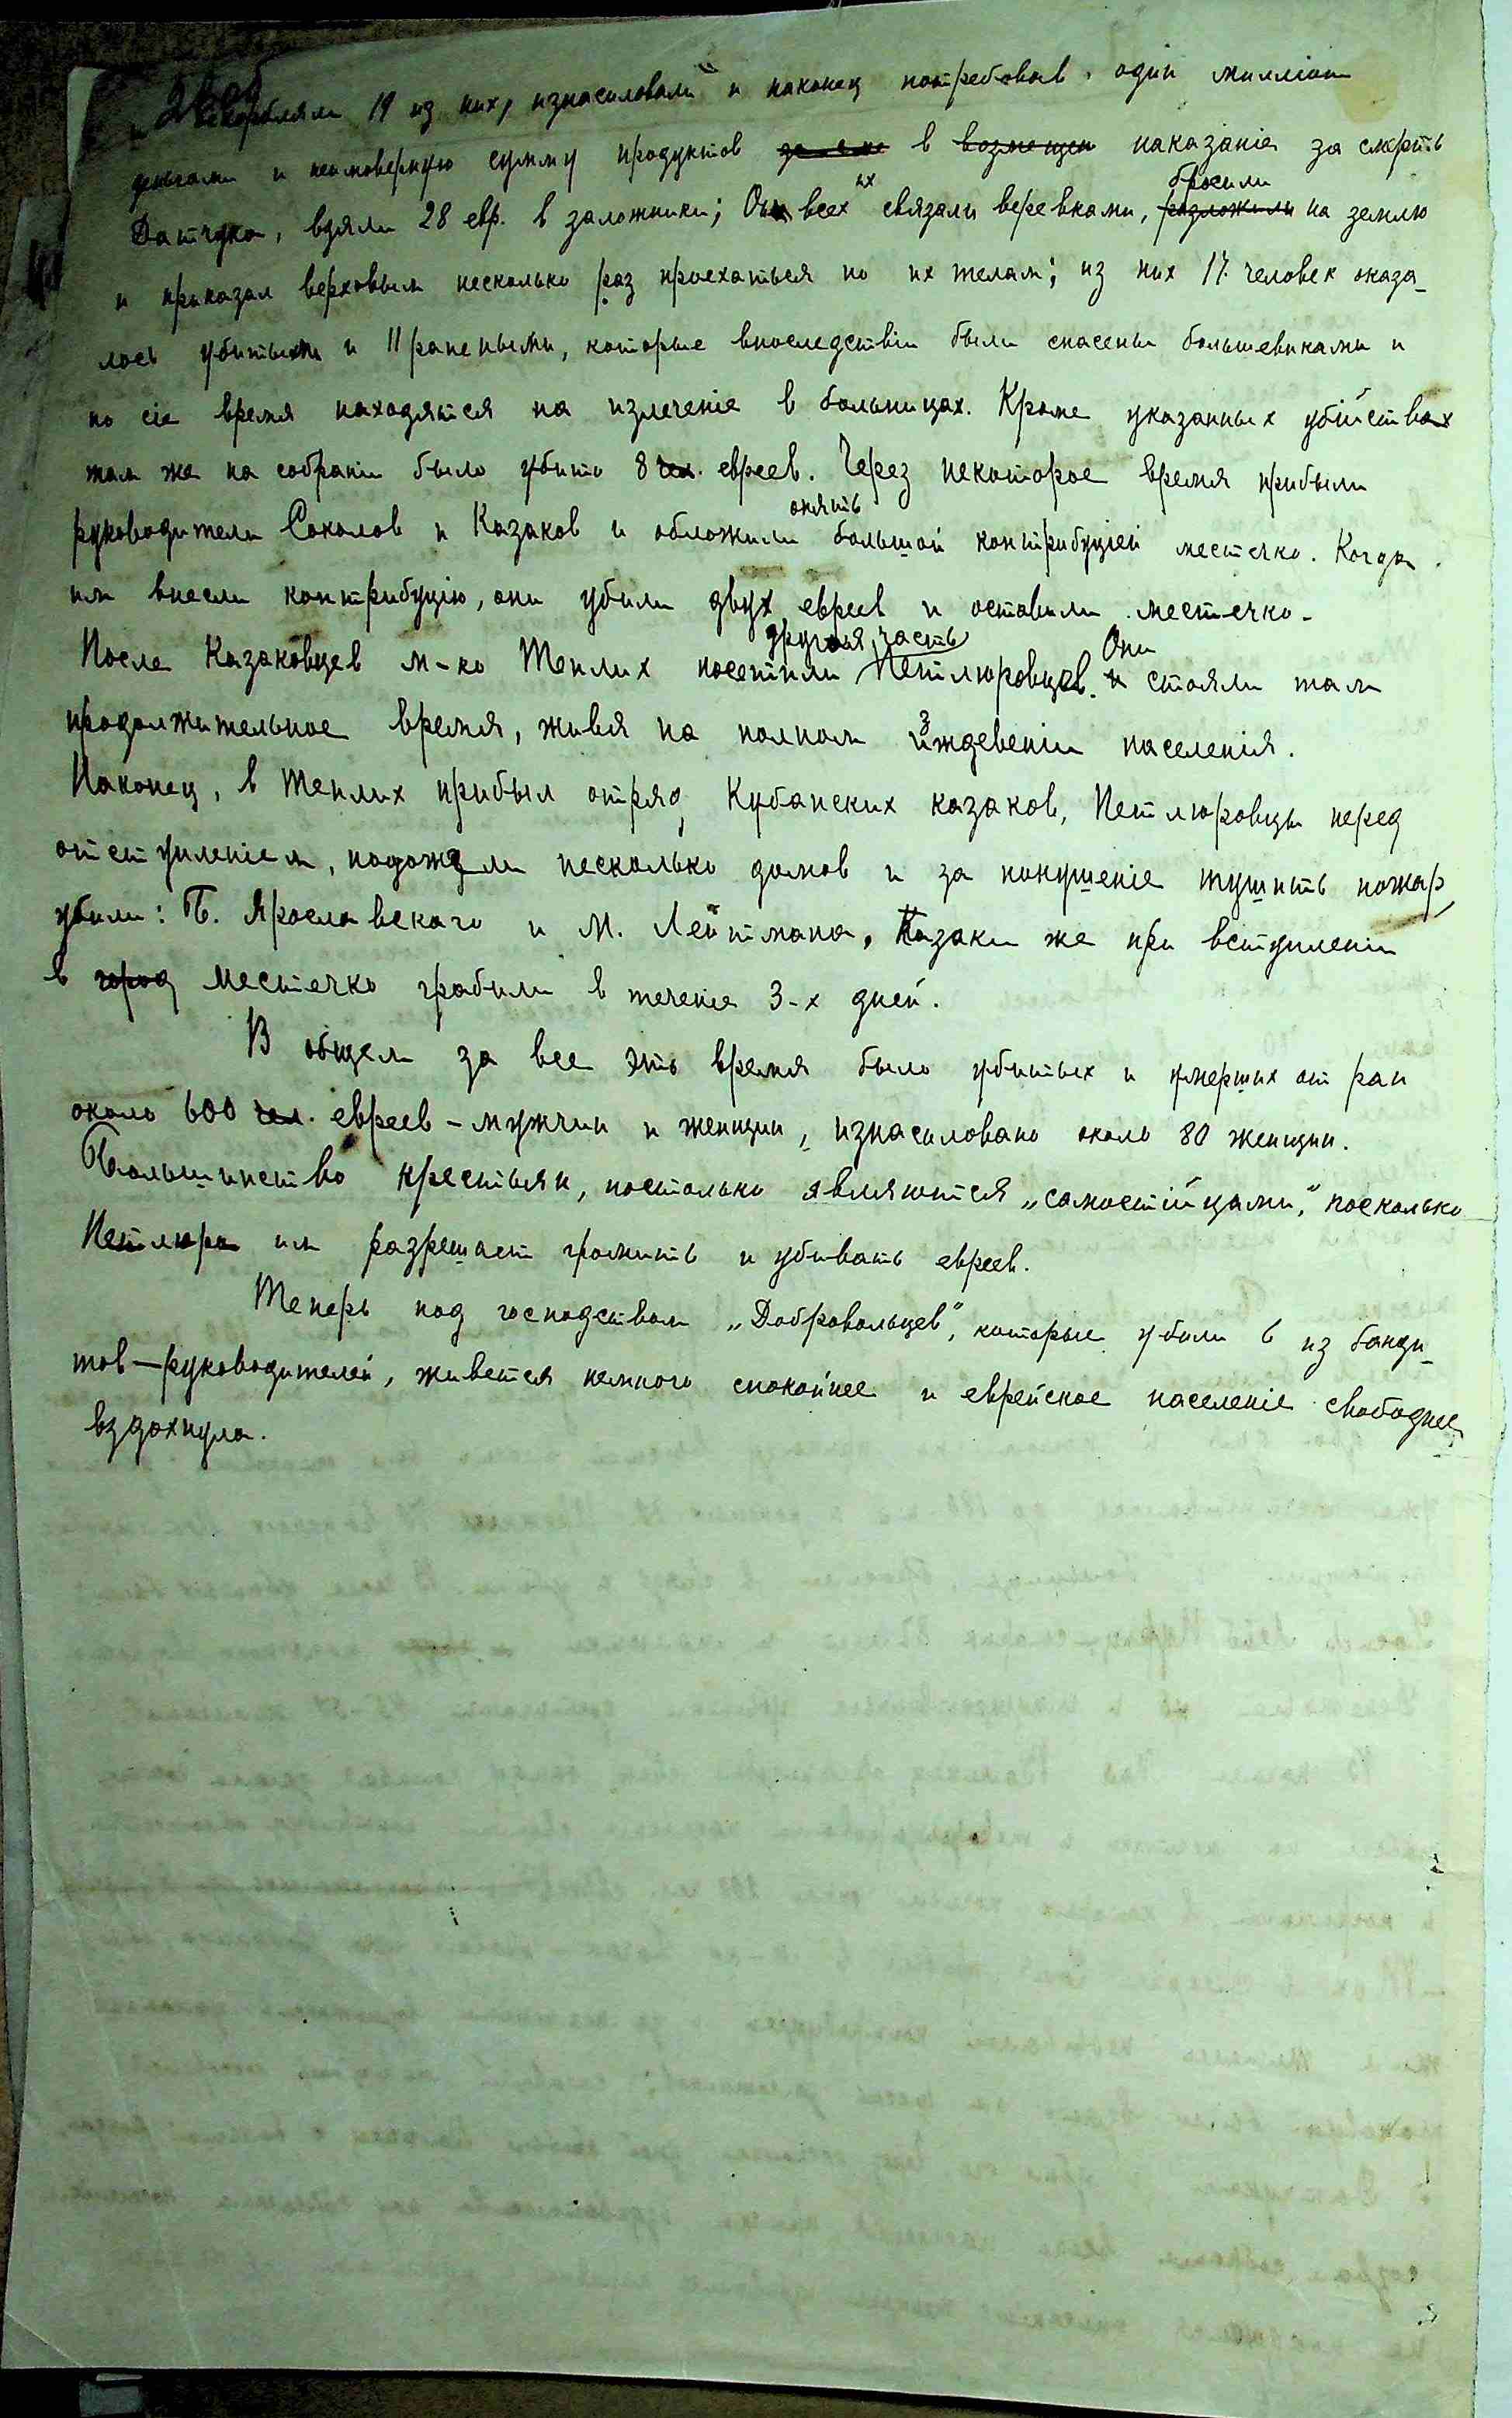 и оскорбляли 19 из них, изнасиловали и наконец потребовав один миллион
деньгами и неимоверную сумму продуктов в возмещен наказаніе за смерть
Датчука, взяли 28 евр. в заложники; Он всех их связали веревками, разложили бросили на землю
и приказал верховым несколько раз проехаться по их телам; из них 17 человек оказа-
лось убитыми и 11 ранеными, которые впоследствіи были спасены большевиками и
по сіе время находятся на излеченіе в больницах. Кроме указанных убійствах
там же на собраніи было убито 8 чел. евреев. Через некоторое время прибыли
руководители Соколов и Казаков и обложили опять большой контрибуціей местечко. Когда
им внесли контрибуцію, они убили двух евреев и оставили местечко.
После Казаковцев м-ко Теплик посетили другая часть Петлюровцев. и Они стояли там
продолжительное время, живя на полном иждевеніи населенія.
Наконец, в Теплик прибыл отряд Кубанских казаков, Петлюровцы перед
отступленіем, подожгли несколько домов и за покушеніе тушить пожар,
убили: Б. Ярославскаго и М. Лейтмана, Казаки же при вступленіи
в город местечко грабили в теченіе 3-х дней.
В общем за все это время было убитых и умерших от ран
около 600 чел. евреев - мужчин и женщин, изнасиловано около 80 женщин.
Большинство крестьян, постолько являются „самостійцами", посколько
Петлюра им разрешает громить и убивать евреев.
Теперь под господством „Добровольцев", которые убили 6 из банди-
тов - руководителей, живется немного спокойнее и еврейское населеніе свободнее
вздохнула.